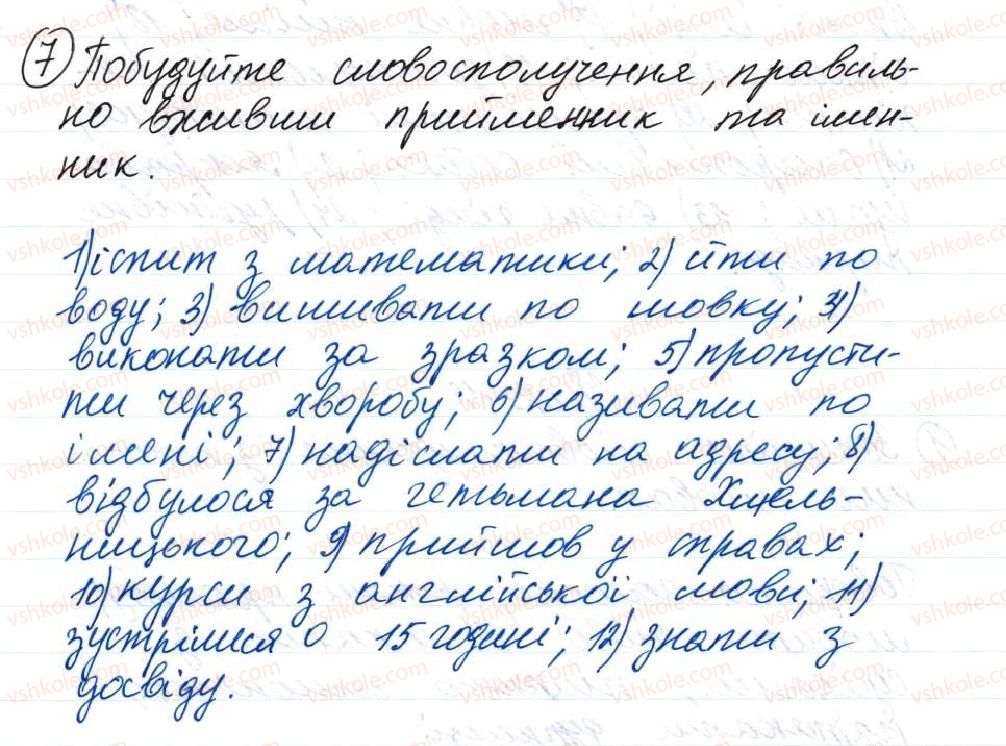 7 Побудуйте словосполучення, правиль-
но вживши прийменник та імен-
ник.
1) іспит з математики; 2) йти по
воду; 3) вишивати по шовку; 4)
виконати за зразком; 5) пропусти-
ти через хворобу; 6) називати по
імені; 7) надіслати на адресу; 8)
відбулося за гетьмана Хмель-
ницького; 9) прийшов у справах;
10) курси з англійської мови; 11)
зустрілися о 15 годині; 12) знати з
досвіду.